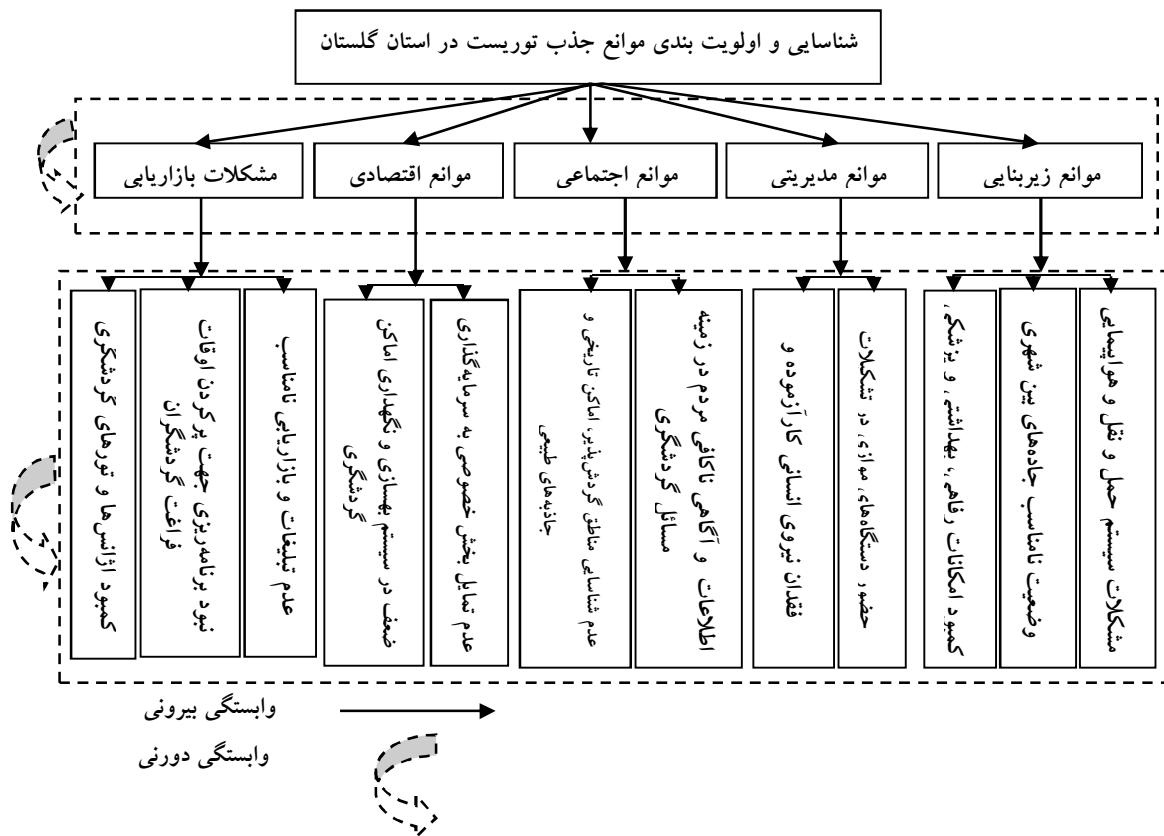 شناسایی و اولویت بندی موانع جذب توریست در استان گلستان
موانع زیربنایی
موانع مدیریتی
موانع اجتماعی
موانع اقتصادی
مشکلات بازاریابی
مشکلات سیستم حمل و نقل و هواپیمایی
وضعیت نامناسب جاده‌های بین شهری
کمبود امکانات رفاهی، بهداشتی و پزشکی
حضور دستگاه‌های موازی در تشکلات
فقدان نیروی انسانی کارآزموده و
اطلاعات و آگاهی ناکافی مردم در زمینه
مسائل گردشگری
عدم شناسایی مناطق گردش‌پذیر، اماکن تاریخی و
جاذبه‌های طبیعی
عدم تمایل بخش خصوصی به سرمایه‌گذاری
ضعف در سیستم بهسازی و نگهداری اماکن
گردشگری
عدم تبلیغات و بازاریابی نامناسب
نبود برنامه‌ریزی جهت پرکردن اوقات
فراغت گردشگران
کمبود اژانس‌ها و تورهای گردشگری
وابستگی بیرونی
وابستگی دورنی